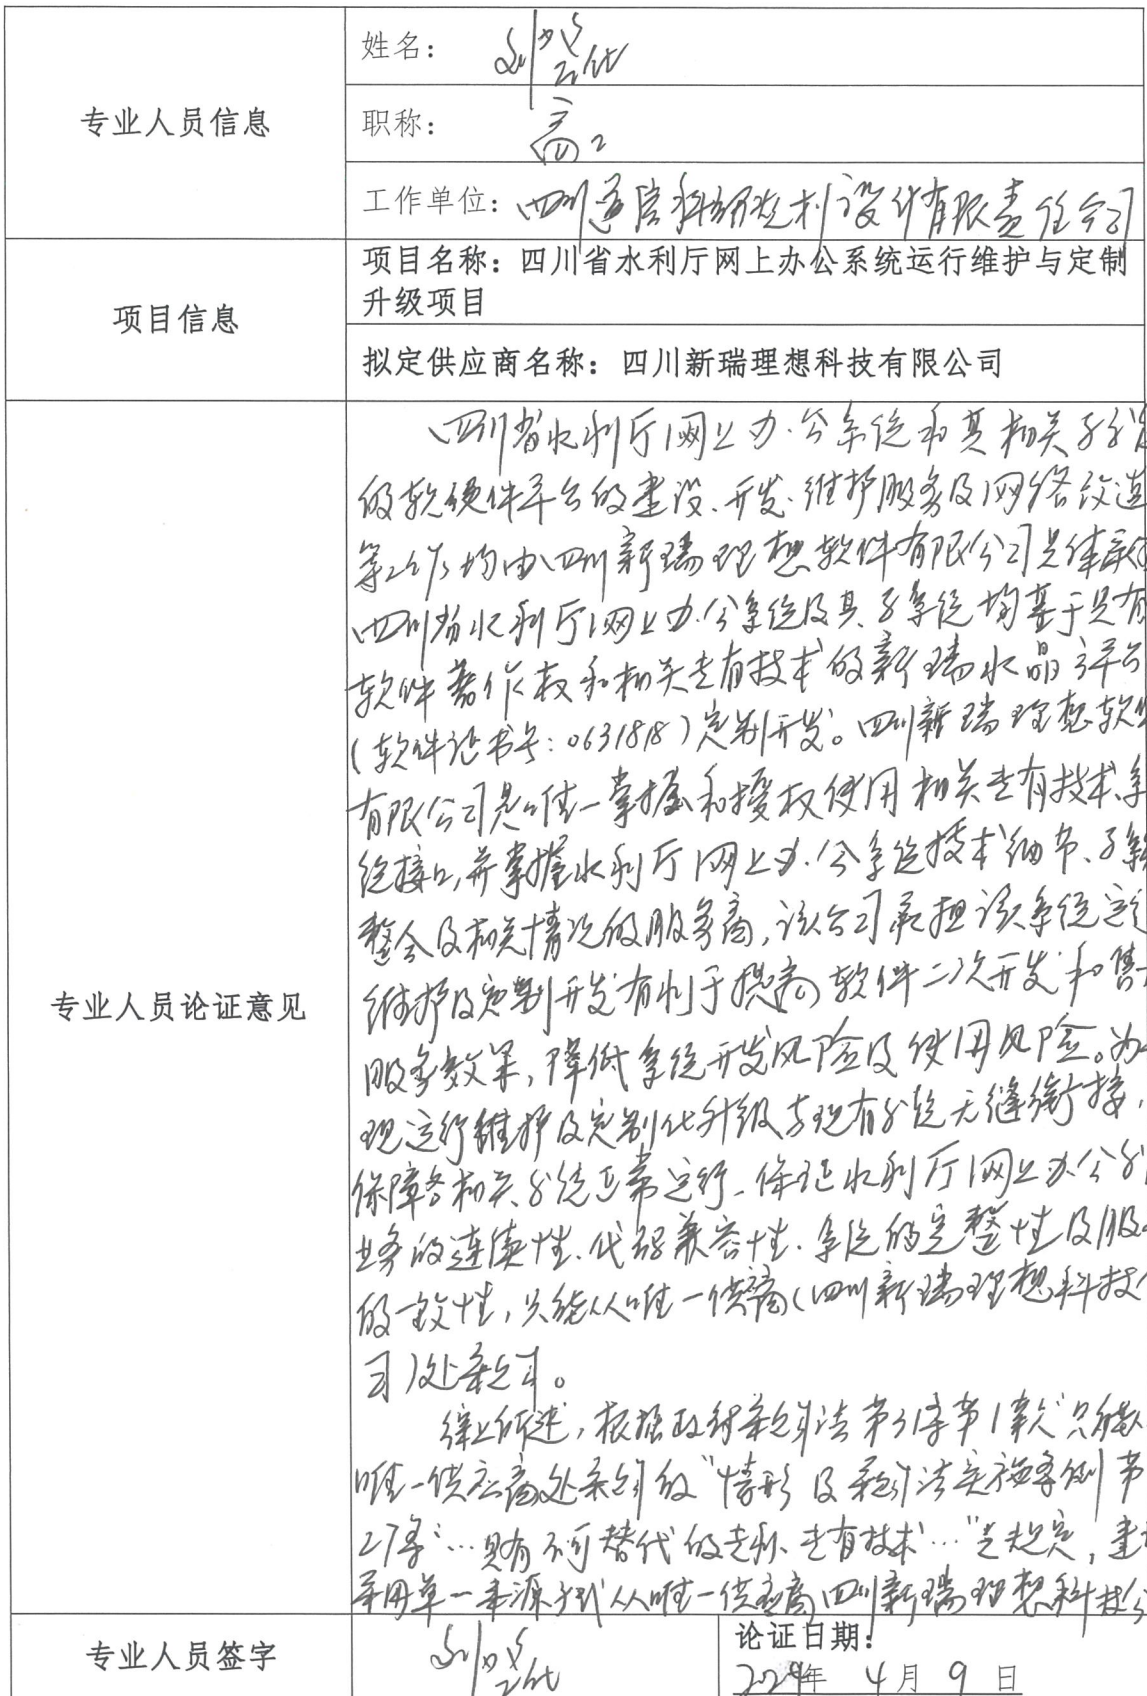 专业人员信息
姓名：
职称：高工
工作单位：四川 设计有限责任公司
项目信息
项目名称：四川省水利厅网上办公系统运行维护与定制
升级项目
拟定供应商名称：四川新瑞理想科技有限公司
专业人员论证意见
四川省水利厅网上办公系统和其相关子系
的软硬件平台的建设、开发、维护服务及网络改造
等工作均由四川新瑞理想软件有限公司具体承
四川省水利厅网上办公系统及其子系统均基于具有
软件著作权和相关专有技术的新瑞水晶平台
（软件证书号：0631818）定制开发。四川新瑞理想软件
有限公司是唯一掌握和授权使用相关专有技术、系
统接口，并掌握水利厅网上办公系统技术细节、子系
整合及相关情况的服务商，该公司承担该系统运行
维护及定制开发有利于提高软件二次开发和售
服务效果，降低系统开发风险及使用风险。为
现运行维护及定制化升级与现有系统无缝衔接，
保障各相关系统正常运行、保证水利厅网上办公系
业务的连续性、代码兼容性、系统的完整性及服
的一致性，只能从唯一供商（四川新瑞理想科技
司）处采购。
综上所述，根据政府采购法第31条第1款“只能
唯一供应商处采购的”情形及采购法实施条例第
27条“…具有不可替代的专利、专有技术…”之规定，建
采用单一来源方式从唯一供应商四川新瑞理想科技公
专业人员签字
论证日期：
2024年 4月 9日